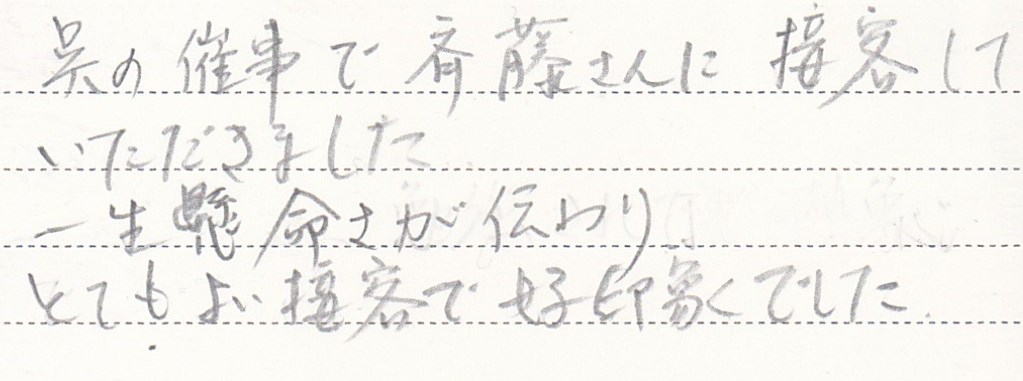 呉の催事で斉藤さんに接客して
いただきました
一生懸命さが伝わり、
とてもよい接客で好印象でした。